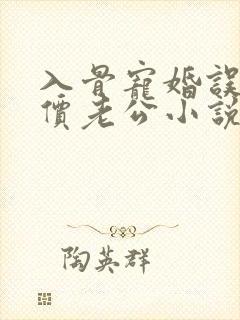 入骨寵婚誤
價老公小說
陶英群